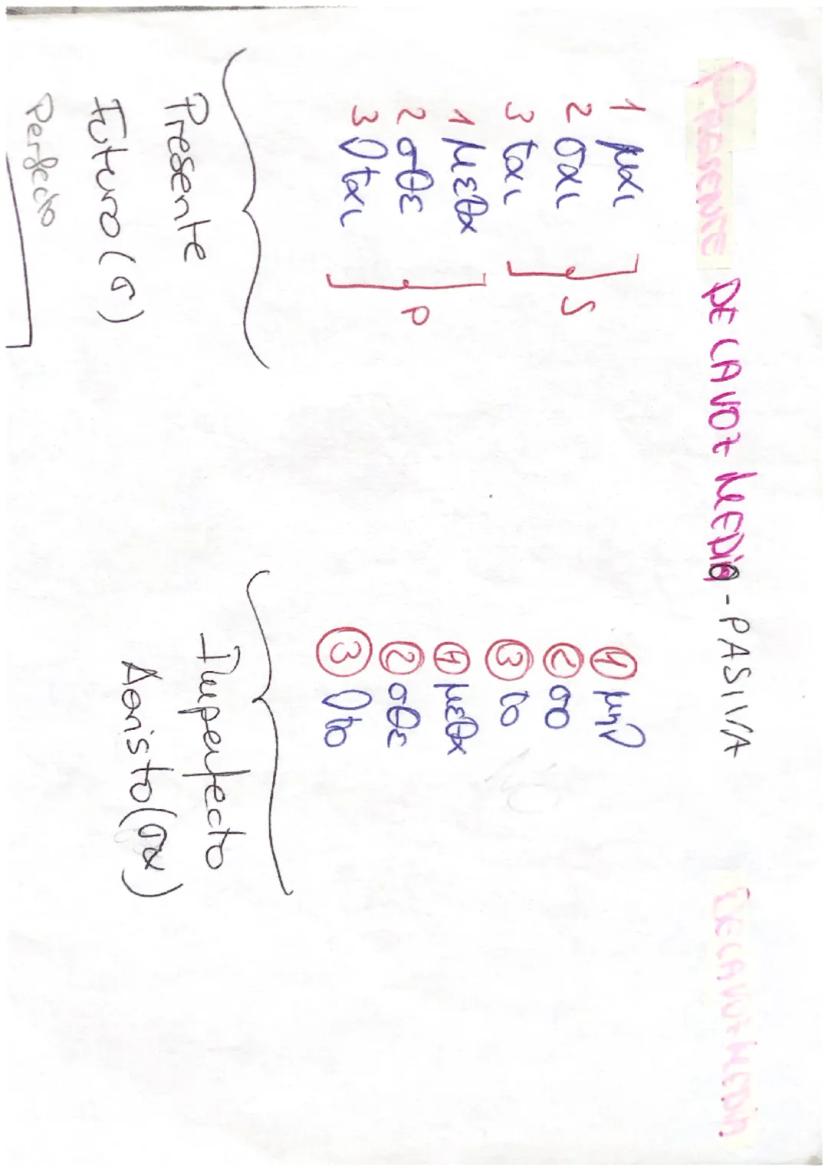 PRESENTE DE LA VOZ MEDIA - PASIVA
DE LA VOZ MEDIA
1 μαι
2 σαι
3 ται
S
1 μεθα
2 σθε
3 νται
P
Presente
Futuro (σ)
Perfecto
1 μην
2 σο
3 το
1 μεθα
2 σθε
3 ντο
Imperfecto
Aoristo (σα)